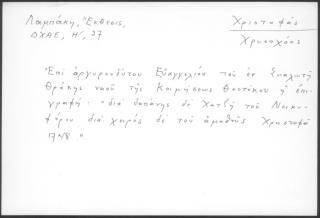 Λαμπάκη, Ἔκθεσις,
ΔΧΑΕ, Η', 37
Χριστοφᾶς
Χρυσοχόος
Ἐπὶ ἀργυρενδύτου Εὐαγγελίου τοῦ ἐν Σκαλωτῇ
Θράκης ναοῦ τῆς Κοιμήσεως Θεοτόκου ἡ ἐπι-
γραφή: "διὰ δαπάνης δὲ Χατζῆ τοῦ Νεικη-
φόρου διὰ χειρὸς δὲ τοῦ ἀμαθοῦς Χριστοφᾶ
"